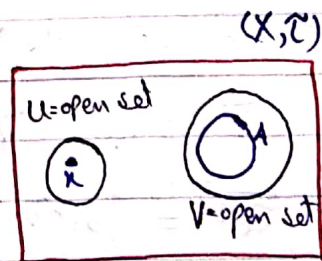 (X,τ)
U=open set
x
A
V=open set